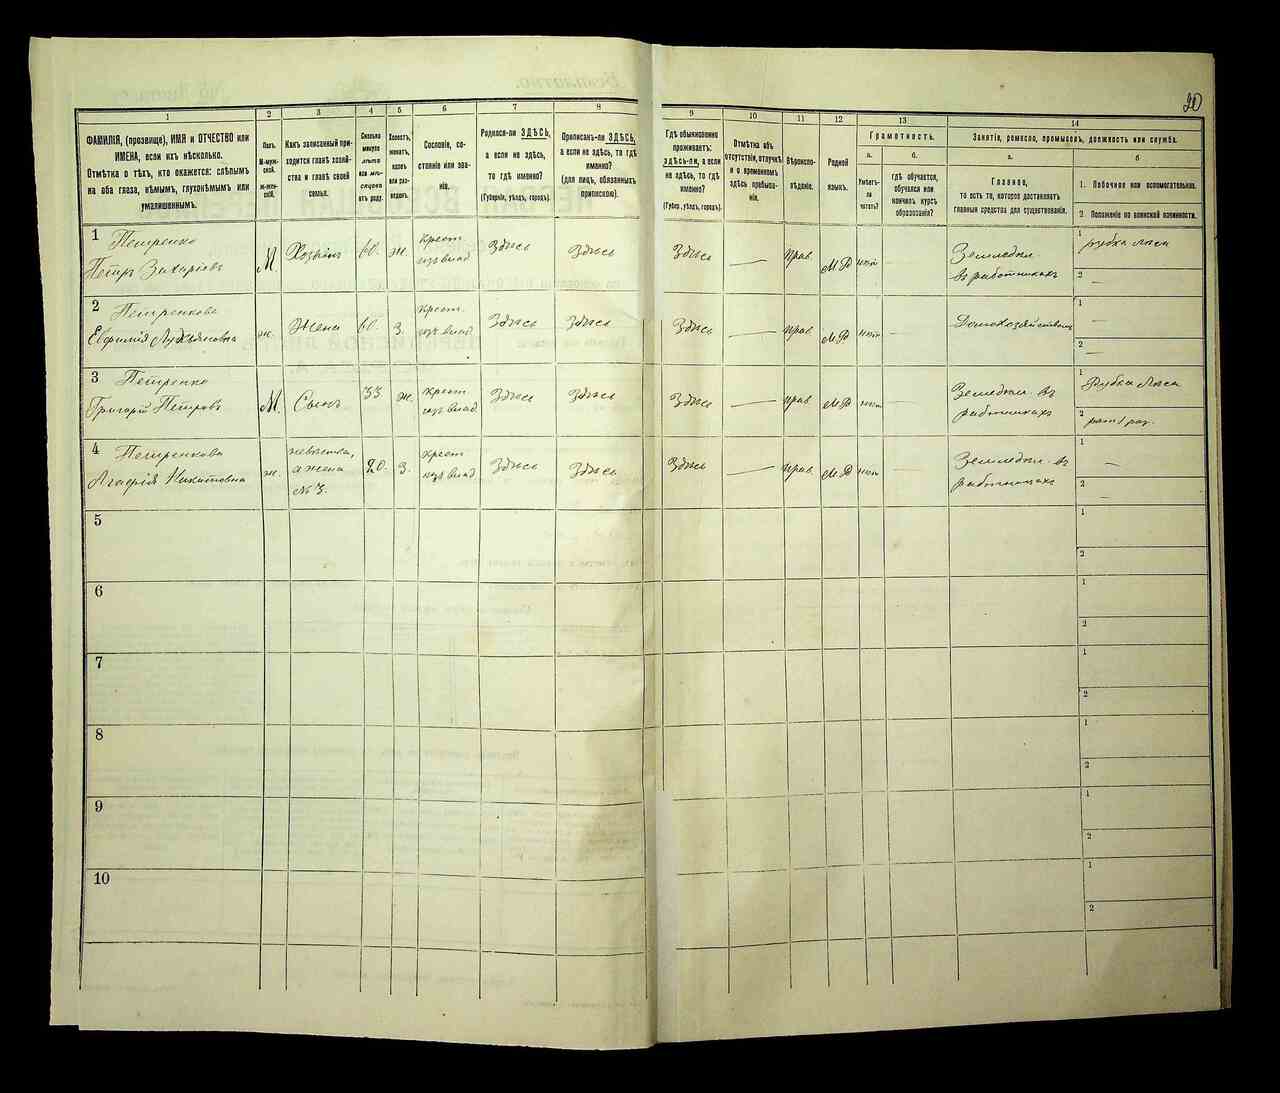 20
1
2
3
4
5
6
7
8
9
10
11
12
13
14
ФАМИЛІЯ, (прозвище), ИМЯ и ОТЧЕСТВО или
ИМЕНА, если ихъ нѣсколько.
Отмѣтка о тѣхъ, кто окажется: слѣпымъ
на оба глаза, нѣмымъ, глухонѣмымъ или
умалишеннымъ.
Полъ.
М-муж-
ской.
ж-жен-
скій.
Какъ записанный при-
ходится главѣ хозяй-
ства и главѣ своей
семьи.
Сколько
минуло
лѣтъ
или мѣ-
сяцевъ
отъ роду.
Холостъ,
женатъ,
вдовъ
или раз-
веденъ.
Сословіе, со-
стояніе или зва-
ніе.
Родился-ли ЗДѢСЬ,
а если не здѣсь,
то гдѣ именно?
(Губернія, уѣздъ, городъ).
Приписанъ-ли ЗДѢСЬ,
а если не здѣсь, то гдѣ
именно?
(для лицъ, обязанныхъ
припискою).
Гдѣ обыкновенно
проживаетъ:
здѣсь-ли, а если
не здѣсь, то гдѣ
именно?
(Губер., уѣздъ, городъ).
Отмѣтка объ
отсутствіи, отлучкѣ
и о временномъ
здѣсь пребыва-
ніи.
Вѣроиспо-
вѣданіе.
Родной
языкъ.
Грамотность.
а.
б.
Умѣетъ-
ли
читать?
гдѣ обучается,
обучался или
кончилъ курсъ
образованія?
Занятіе, ремесло, промыселъ, должность или служба.
а.
б.
Главное,
то есть то, которое доставляетъ
главныя средства для существованія.
1. Побочное или вспомогательное.
2. Положеніе по воинской повинности.
1
Петренко
Петръ Захаріевъ
М.
Хозяинъ
60.
ж.
Крест.
изъ влад.
Здѣсь
Здѣсь
Здѣсь
—
прав.
М.Р.
нѣт
Земледѣл.
въ работникахъ
1
рубка лѣса
2
—
2
Петренкова
Евфимія Лукьяновна
ж.
Жена
60.
З.
Крест.
изъ влад.
Здѣсь
Здѣсь
Здѣсь
—
прав
М.Р.
нѣт
Домохозяйством
1
—
2
—
3
Петренко
Григорій Петровъ
М.
Сынъ
33
ж.
Крест.
изъ влад.
Здѣсь
Здѣсь
Здѣсь
—
прав
М.Р.
нѣт
Земледѣл. въ
работникахъ
1
Рубка лѣса
2
рат. 1 раз.
4
Петренкова
Агафія Никитовна
ж.
невѣстка,
а жена
№ 3.
20.
З.
Крест
изъ влад
Здѣсь
Здѣсь
Здѣсь
—
прав
М.Р.
нѣт
Земледѣл. въ
работникахъ
1
—
2
—
5
1
2
6
1
2
7
1
2
8
1
2
9
1
2
10
1
2